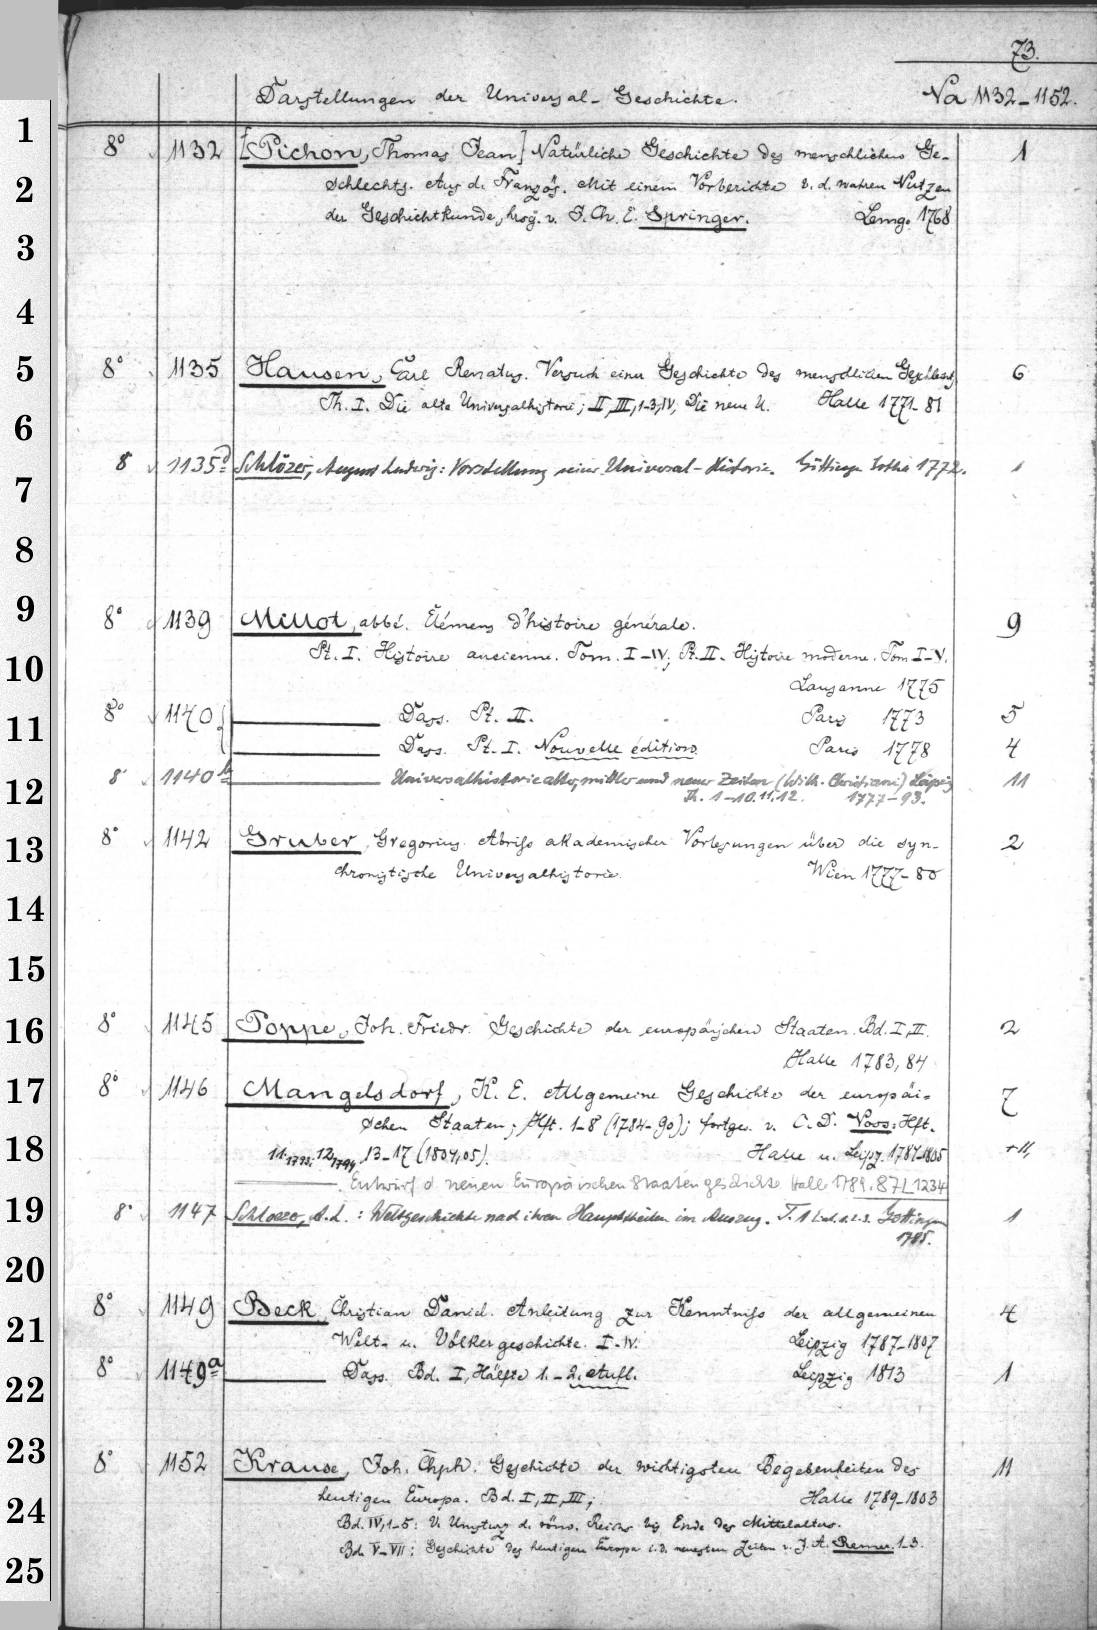 73.
Darstellungen der Universal-Geschichte. Na 1132-1152.
1
8° 1132 [Pichon, Thomas Jean] Natürliche Geschichte des menschlichen Ge- 1
2
schlechts. Aus d. Französ. Mit einem Vorberichte v. d. wahren Nutzen
der Geschichtkunde, hrsg. v. J. Ch. E. Springer. Lemg. 1768
3
4
5
8° 1135 Hausen, Carl Renatus. Versuch einer Geschichte des menschlichen Geschlechts 6
Th. I. Die alte Universalhistorie; II, III, 1-3, IV, Die neue U. Halle 1771-81
6
8 1135d Schlözer, August Ludwig: Vorstellung seiner Universal-Historie. Göttingen Gotha 1772. 1
7
8
9
8° 1139 Millot, abbé. Élémens d'histoire générale. 9
10
Pt. I. Histoire ancienne. Tom. I-IV; Pt. II. Histoire moderne. Tom I-V.
Lausanne 1775
11
8° 1140 { Dass. Pt. II. Paris 1773 5
Dass. Pt. I. Nouvelle édition. Paris 1778 4
12
8° 1140b Universalhistorie alter, mittler und neuer Zeiten (Wilh. Christiani) Leipzig 11
Th. 1-10. 11. 12. 1777-93.
13
8° 1142 Gruber, Gregorius. Abriss akademischer Vorlesungen über die syn- 2
chronistische Universalhistorie. Wien 1777-80
14
15
16
8° 1145 Poppe, Joh. Friedr. Geschichte der europäischen Staaten. Bd. I, II. 2
Halle 1783, 84
17
8° 1146 Mangelsdorf, K. E. Allgemeine Geschichte der europäi- 7
schen Staaten; Hft. 1-8 (1784-90); fortges. v. C. D. Voss: Hft.
18
11.1793; 12.1794, 13-17 (1804,05). Halle u. Leipz. 1784-1805 +11,
. Entwurf d. neuen Europäischen Staatengeschichte Halle 1789. 87 L 1234
19
8° 1147 Schloezer, A. L.: Weltgeschichte nach ihren Haupttheilen im Auszug. T. 1 Göttingen 1
1785.
20
21
8° 1149 Beck, Christian Daniel. Anleitung zur Kenntniss der allgemeinen 4
Welt- u. Völkergeschichte. I-IV. Leipzig 1787-1807
22
8° 1149a Dass. Bd. I, Hälfte 1.-2. Aufl. Leipzig 1813 1
23
8° 1152 Krause, Joh. Chph. Geschichte der wichtigsten Begebenheiten des 11
24
heutigen Europa. Bd. I, II, III; Halle 1789-1803
Bd. IV, 1-5: V. Umsturz d. röm. Reichs bis Ende des Mittelalters.
25
Bd. V-VII: Geschichte des heutigen Europa i. d. neuesten Zeiten v. J. A. Remer. 1-3.